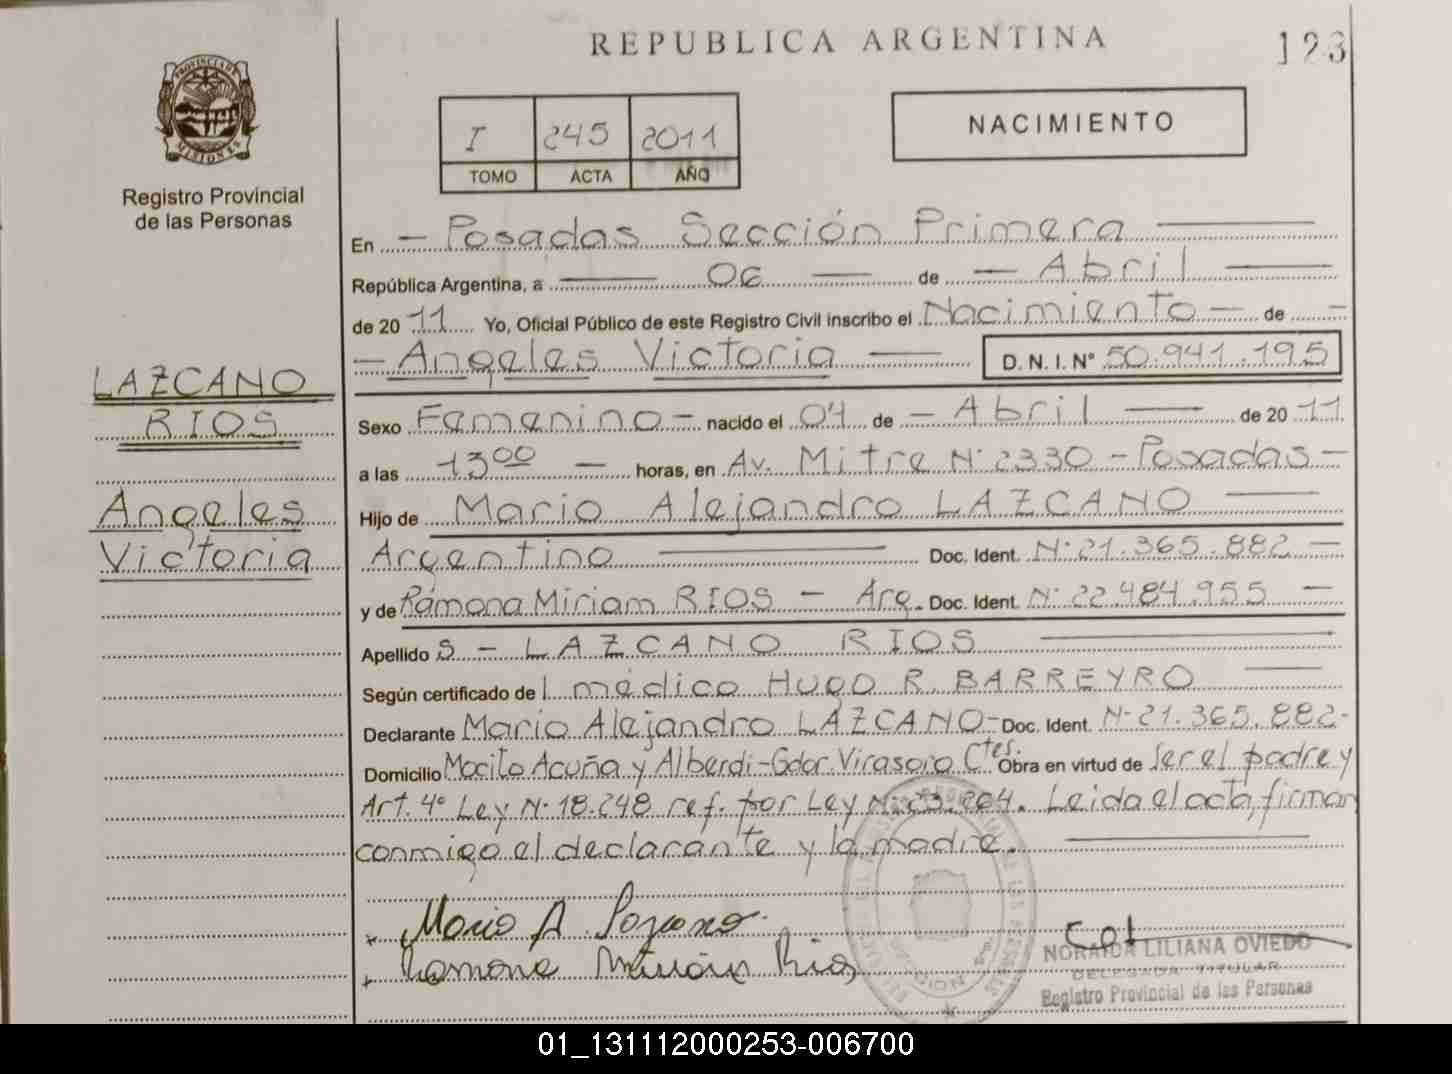 REPUBLICA ARGENTINA
123
PROVINCIA DE MISIONES
Registro Provincial
de las Personas
I 245 2011
TOMO ACTA AÑO
NACIMIENTO
En – Posadas Sección Primera —
República Argentina, a — 06 — de — Abril —
de 2011 Yo, Oficial Público de este Registro Civil inscribo el Nacimiento – de –
– Angeles Victoria — D. N. I. N° 50.941.195
LAZCANO
RIOS
Angeles
Victoria
Sexo Femenino – nacido el 04 de – Abril — de 2011
a las 13 00 — horas, en Av. Mitre N° 2330 – Posadas –
Hijo de Mario Alejandro LAZCANO —
Argentino — Doc. Ident. N° 21.365.882 –
y de Ramona Miriam RIOS – Arg. Doc. Ident. N° 22.484.955 –
Apellido S – LAZCANO RIOS —
Según certificado de l médico HUGO R. BARREYRO —
Declarante Mario Alejandro LAZCANO – Doc. Ident. N° 21.365.882 -
Domicilio Mocito Acuña y Alberdi - Gdor. Virasoro Ctes. Obra en virtud de ser el padre y
Art. 4° Ley N° 18.248 ref. por Ley N° 23.264. Leida el acta, firman
conmigo el declarante y la madre. —
Mario A Lazcano
Ramona Miriam Rios
NORAIDA LILIANA OVIEDO
DELEGADA TITULAR
Registro Provincial de las Personas
01_131112000253-006700